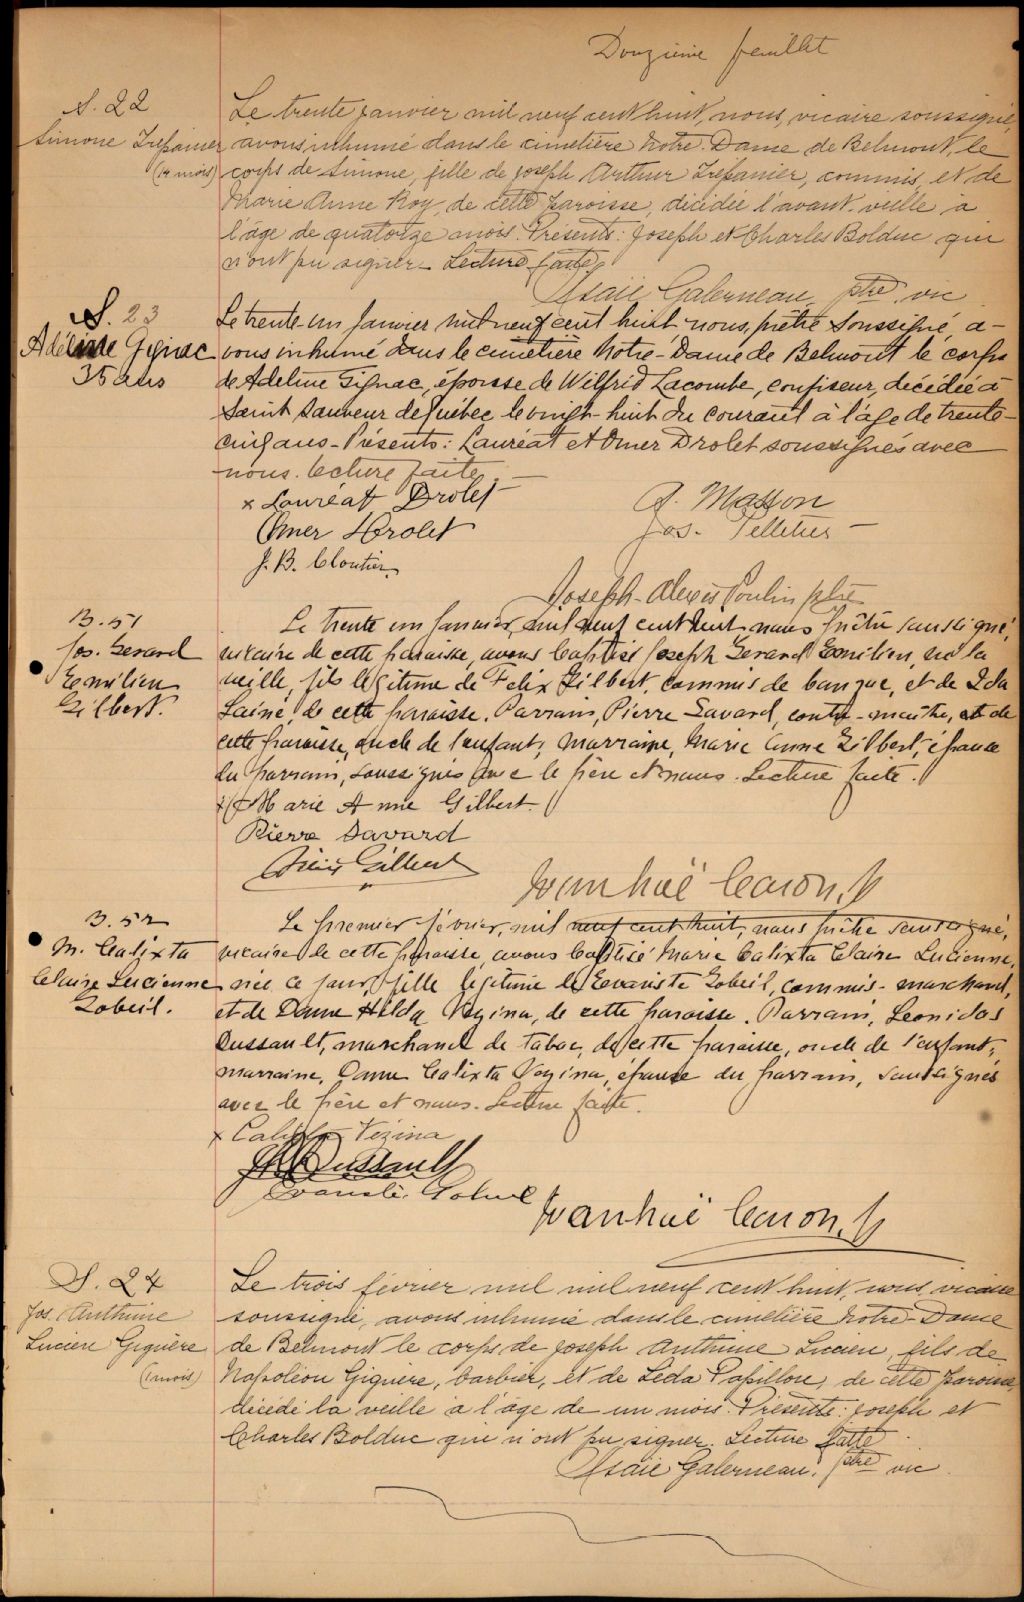 Douzième feuillet
S. 22
Simone Trépanier
(14 mois)
Le trente janvier mil neuf cent huit, nous, vicaire soussigné,
avons inhumé dans le cimetière Notre-Dame de Belmont, le
corps de Simone, fille de Joseph Arthur Trépanier, commis, et de
Marie Anne Roy, de cette paroisse, décédée l'avant-veille a
l'âge de quatorze mois. Présents: Joseph et Charles Bolduc qui
n'ont pu signer. Lecture faite.
Isaïe Galerneau, ptre vic
S. 23
Adéline Gignac
35 ans
Le trente-un Janvier mil neuf cent huit, nous, prêtre soussigné, a-
vons inhumé dans le cimetière Notre-Dame de Belmont le corps
de Adeline Gignac, épouse de Wilfrid Lacombe, confiseur, décédée à
Saint Sauveur de Québec le vingt-huit du courant à l'âge de trente-
cinq ans. Présents: Lauréat et Omer Drolet soussignés avec
nous. Lecture faite.
x Lauréat Drolet
A. Masson
Omer Drolet
Jos. Pelletier
J. B. Cloutier
Joseph-Alexis Poulin ptre
B. 51
Jos. Gerard
Emilien
Gilbert.
Le trente un janvier, mil neuf cent huit nous prêtre soussigné,
vicaire de cette paroisse, avons baptisé Joseph Gerard Emilien, né la
veille, fils légitime de Felix Gilbert, commis de banque, et de Ida
Lainé, de cette paroisse. Parrain, Pierre Savard, contre-maître, de
cette paroisse, oncle de l'enfant; marraine, Marie Anne Gilbert, épouse
du parrain, soussignés avec le père et nous. Lecture faite.
x Marie Anne Gilbert.
Pierre Savard
Félix Gilbert
Ivanhoë Caron, p
B. 52
M. Calixta
Claire Lucienne
Gobeil.
Le premier février, mil neuf cent huit, nous prêtre soussigné,
vicaire de cette paroisse, avons baptisé Marie Calixta Claire Lucienne,
née ce jour, fille légitime de Evariste Gobeil, commis-marchand,
et de Dame Hilda Vézina, de cette paroisse. Parrain, Leonidas
Dussault, marchand de tabac, de cette paroisse, oncle de l'enfant;
marraine, Dame Calixta Vezina, épouse du parrain, soussignés
avec le père et nous. Lecture faite.
x Calixta Vézina
Dussault
Evariste Gobeil
Ivanhoë Caron, p
S. 24
Jos. Anthime
Lucien Giguère
(1 mois)
Le trois février mil mil neuf cent huit, nous, vicaire
soussigné, avons inhumé dans le cimetière Notre-Dame
de Belmont le corps de Joseph Anthime Lucien, fils de
Napoléon Giguère, barbier, et de Léda Papillon, de cette paroisse,
décédé la veille à l'âge de un mois. Présents: Joseph et
Charles Bolduc qui n'ont pu signer. Lecture faite.
Isaïe Galerneau, ptre vic